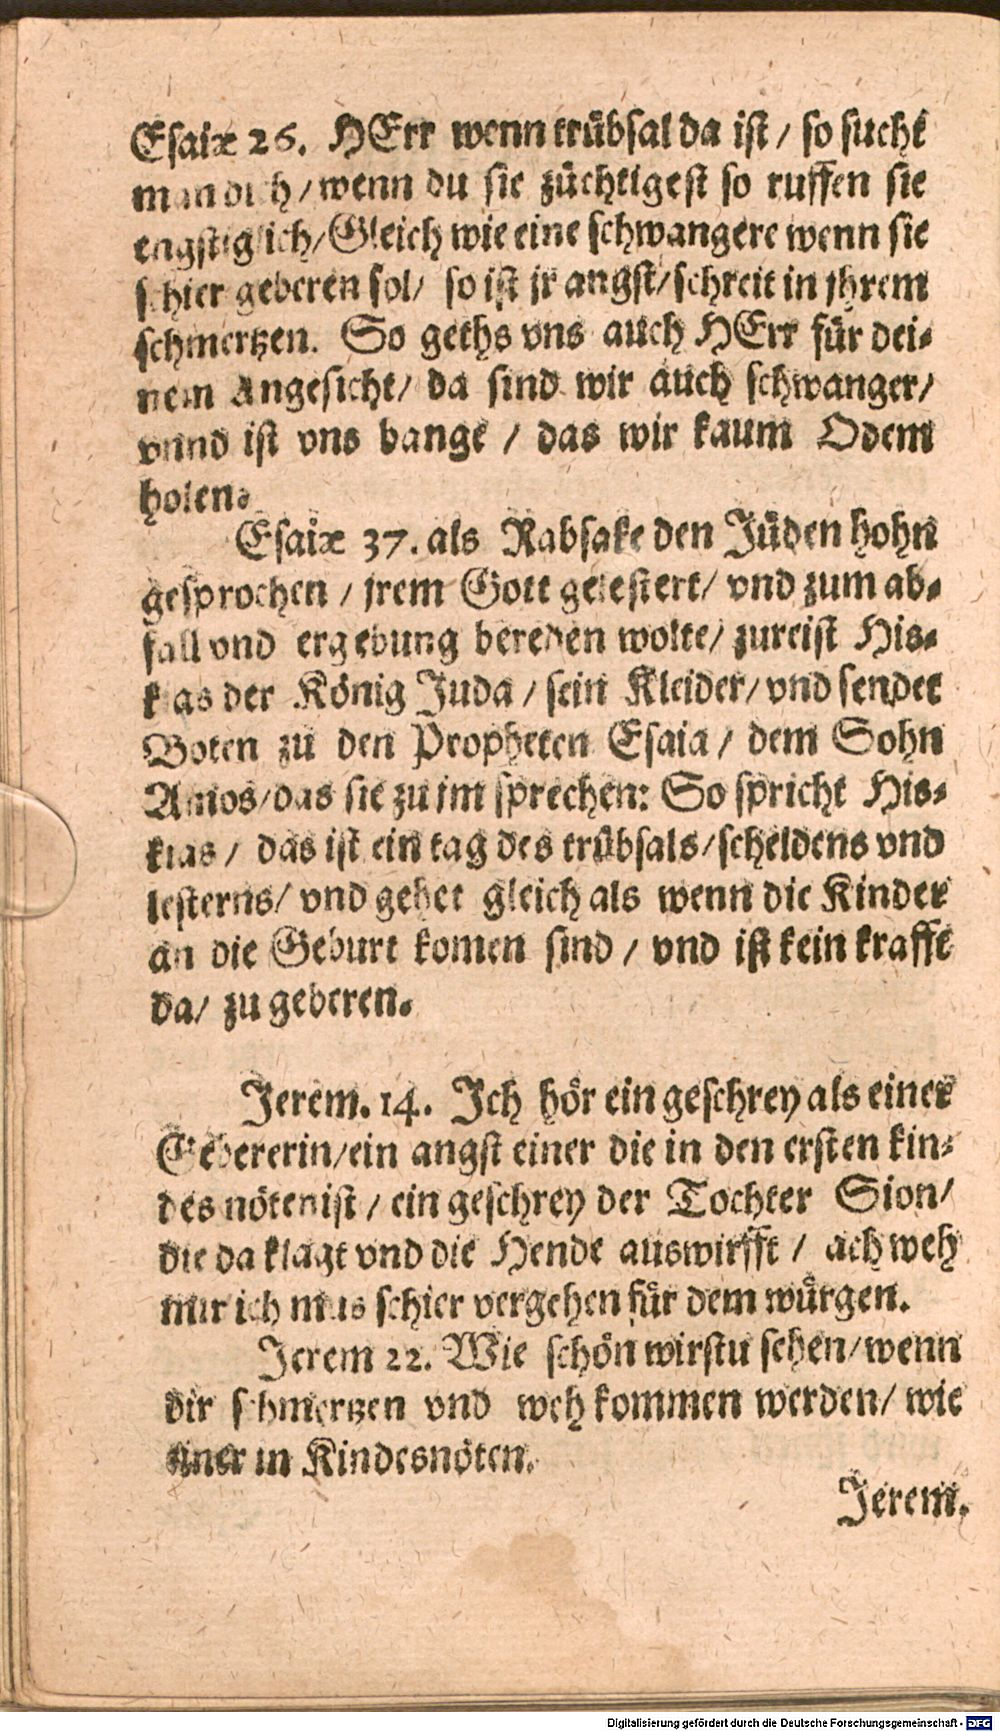 Esaiæ 26. HErr wenn trübsal da ist / so sucht
man dich / wenn du sie züchtigest so ruffen sie
engstiglich / Gleich wie eine schwangere wenn sie
schier geberen sol / so ist jr angst / schreit in jhrem
schmertzen. So geths vns auch HErr für dei-
nem Angesicht / da sind wir auch schwanger /
vnnd ist vns bange / das wir kaum Odem
holen.
Esaiæ 37. als Rabsake den Jüden hohn
gesprochen / jrem Gott gelestert / vnd zum ab-
fall vnd ergebung bereden wolte / zureist His-
kias der König Juda / sein Kleider / vnd sendet
Boten zu den Propheten Esaia / dem Sohn
Amos / das sie zu jm sprechen: So spricht His-
kias / das ist ein tag des trübsals / scheldens vnd
lesterns / vnd gehet gleich als wenn die Kinder
an die Geburt komen sind / vnd ist kein krafft
da / zu geberen.
Jerem. 14. Ich hör ein geschrey als einer
Gebererin / ein angst einer die in den ersten kin-
des nöten ist / ein geschrey der Tochter Sion /
die da klagt vnd die Hende auswirfft / ach weh
mir ich mus schier vergehen für dem würgen.
Jerem 22. Wie schön wirstu sehen / wenn
dir schmertzen vnd weh kommen werden / wie
einer in Kindesnöten.
Jerem.
Digitalisierung gefördert durch die Deutsche Forschungsgemeinschaft - DFG